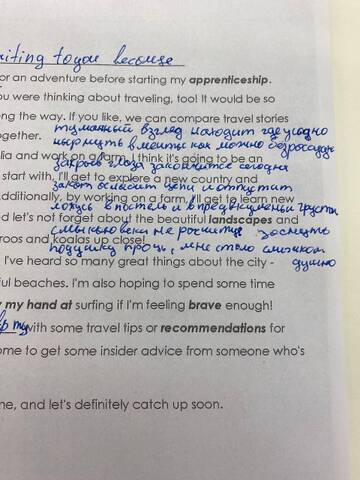 writing to you because
or an adventure before starting my apprenticeship.
ou were thinking about traveling, too! It would be so
ong the way. If you like, we can compare travel stories
ogether.
туманный взгляд находит где угодно
нырнуть в мечты как можно
lia and work on a farm. I think it's going to be an
закрыв глаза закончится сегодня
start with, I'll get to explore a new country and
закат ослабит цепи и отпустит
dditionally, by working on a farm, I'll get to learn new
ложусь в постель и в предвкушеньи грусти
d let's not forget about the beautiful landscapes and
смыкаю веки не заснуть
roos and koalas up close!
подушку прочь, мне стало слишком
душно
I've heard so many great things about the city -
ful beaches. I'm also hoping to spend some time
y my hand at surfing if I'm feeling brave enough!
with some travel tips or recommendations for
ome to get some insider advice from someone who's
ne, and let's definitely catch up soon.